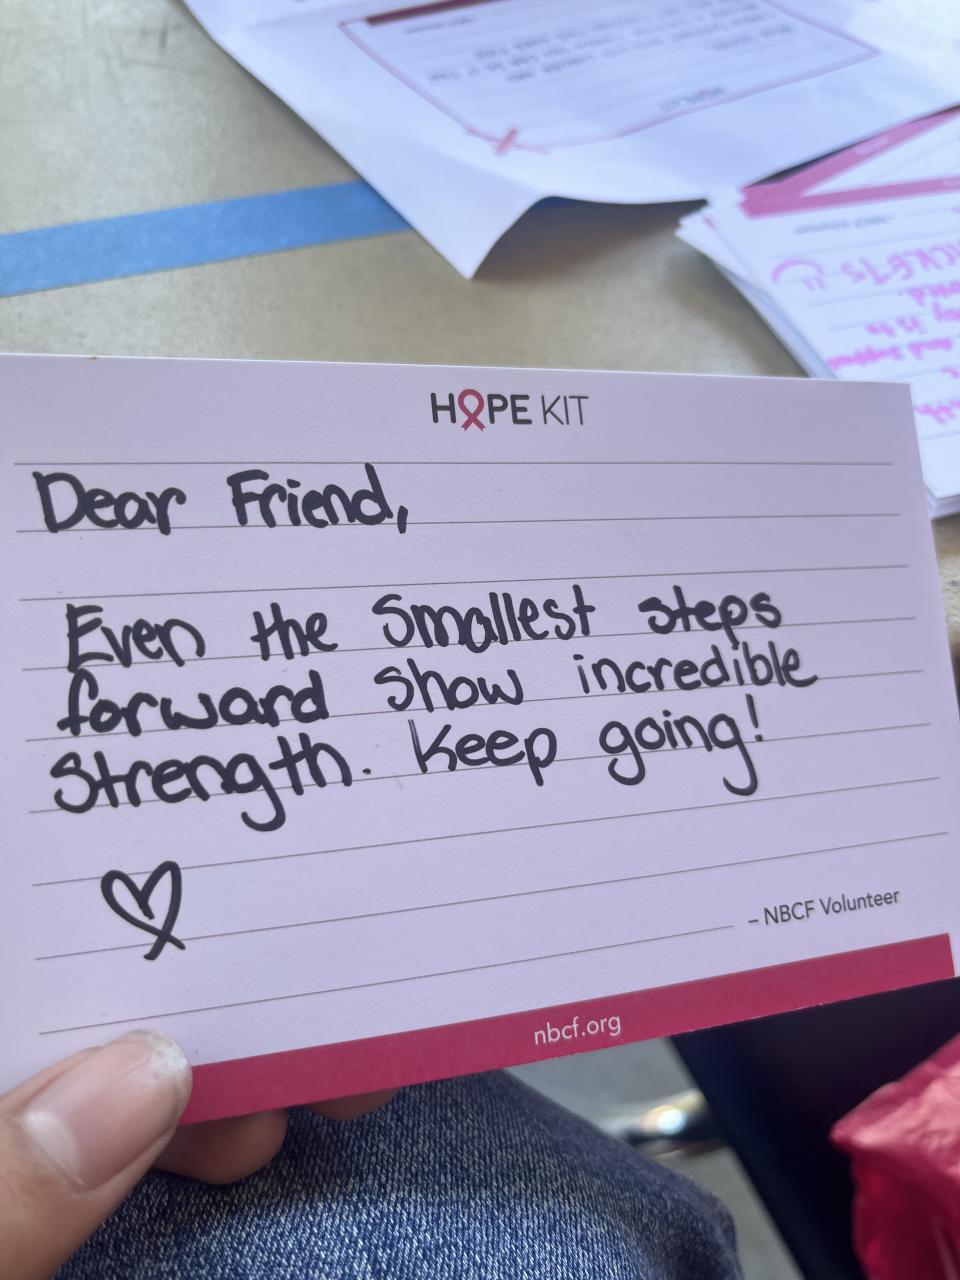 HOPE KIT
Dear Friend,
Even the Smallest steps
forward show incredible
Strength. Keep going!
– NBCF Volunteer
nbcf.org